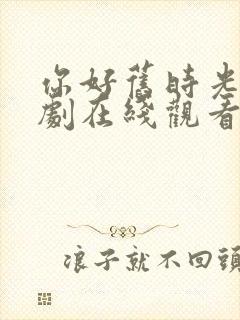 你好舊時光
劇在綫觀看
浪子就不回頭